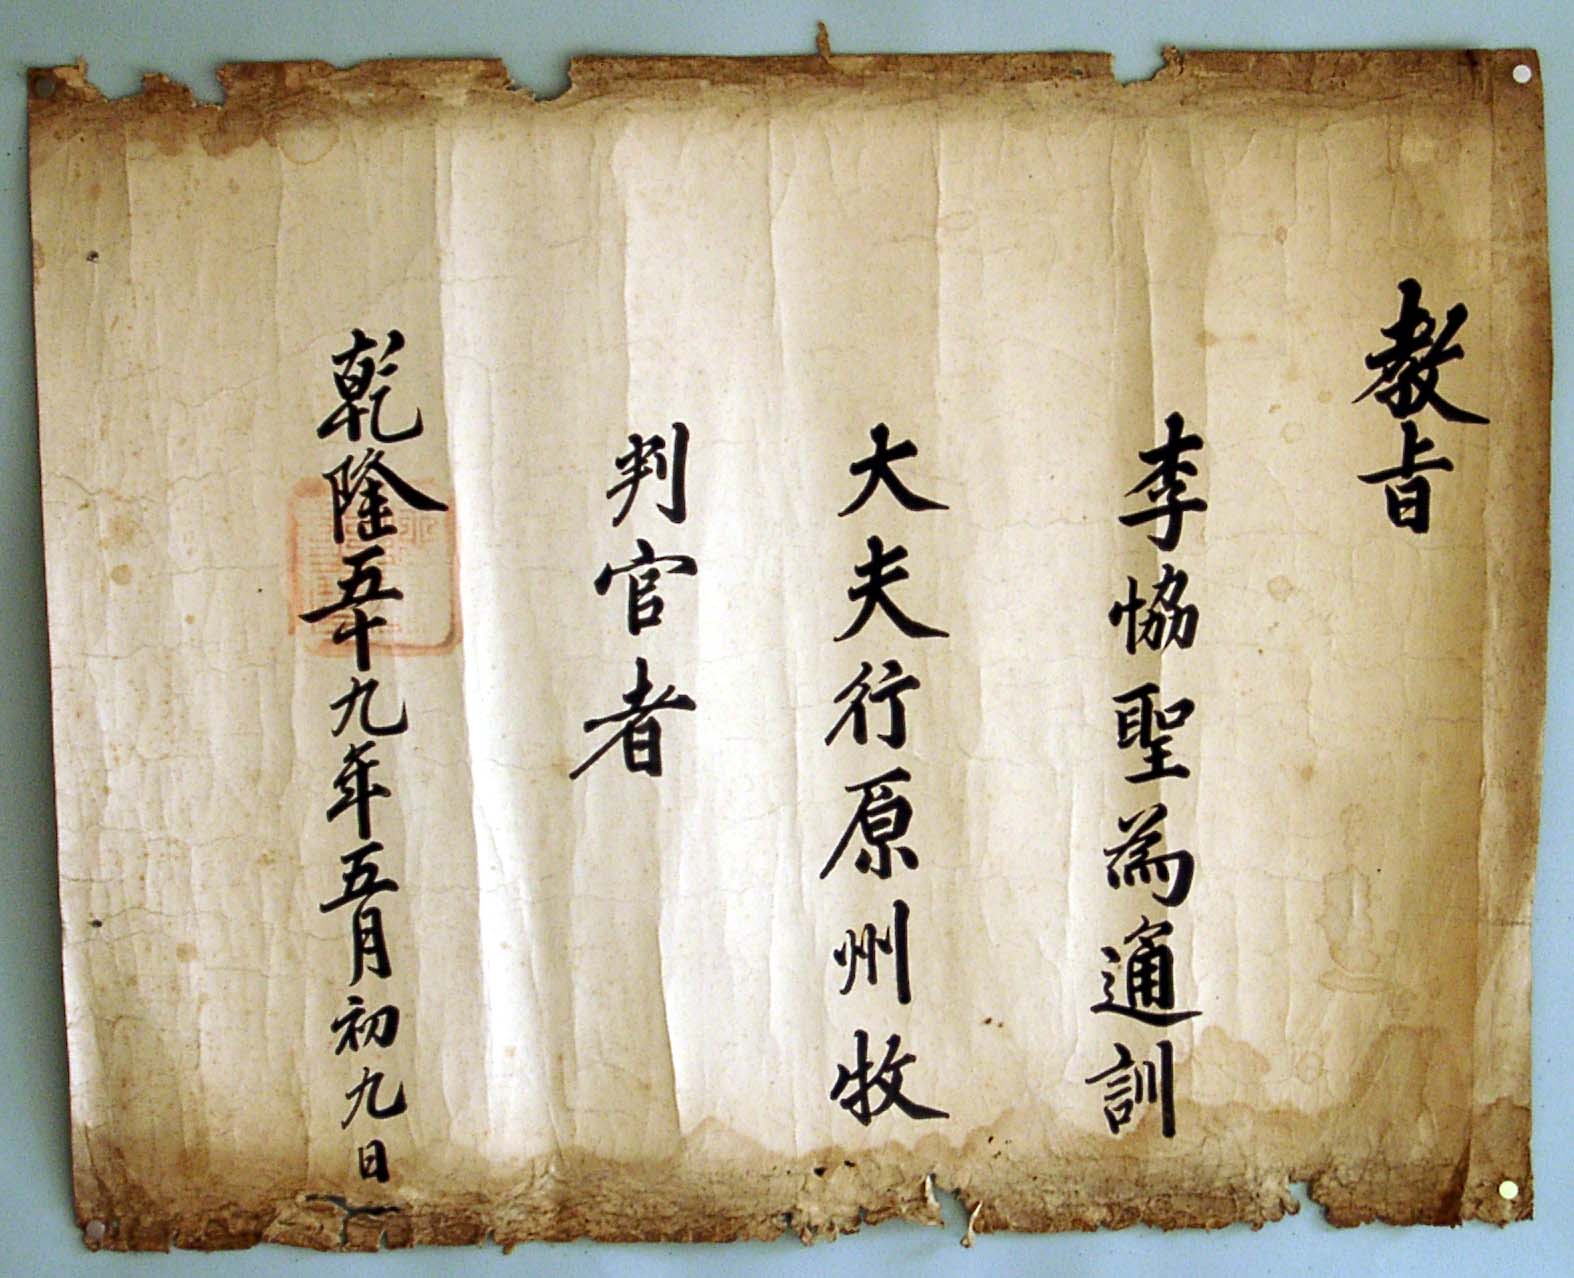 教旨
李恊聖為通訓
大夫行原州牧
判官者
乾隆五十九年五月初九日